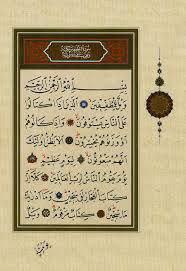 بِسْمِ اللّٰهِ الرَّحْمٰنِ الرَّحِيمِ
وَيْلٌ لِلْمُطَفِّفِينَ اَلَّذِينَ اِذَا اكْتَالُوا
عَلَى النَّاسِ يَسْتَوْفُونَ وَاِذَا كَالُوهُمْ
اَوْ وَزَنُوهُمْ يُخْسِرُونَ اَلَا يَظُنُّ اُولٰئِكَ
اَنَّهُمْ مَبْعُوثُونَ لِيَوْمٍ عَظِيمٍ
يَوْمَ يَقُومُ النَّاسُ لِرَبِّ الْعَالَمِينَ كَلَّا اِنَّ
كِتَابَ الْفُجَّارِ لَفِي سِجِّينٍ وَمَا اَدْرٰيكَ
مَا سِجِّينٌ كِتَابٌ مَرْقُومٌ وَيْلٌ